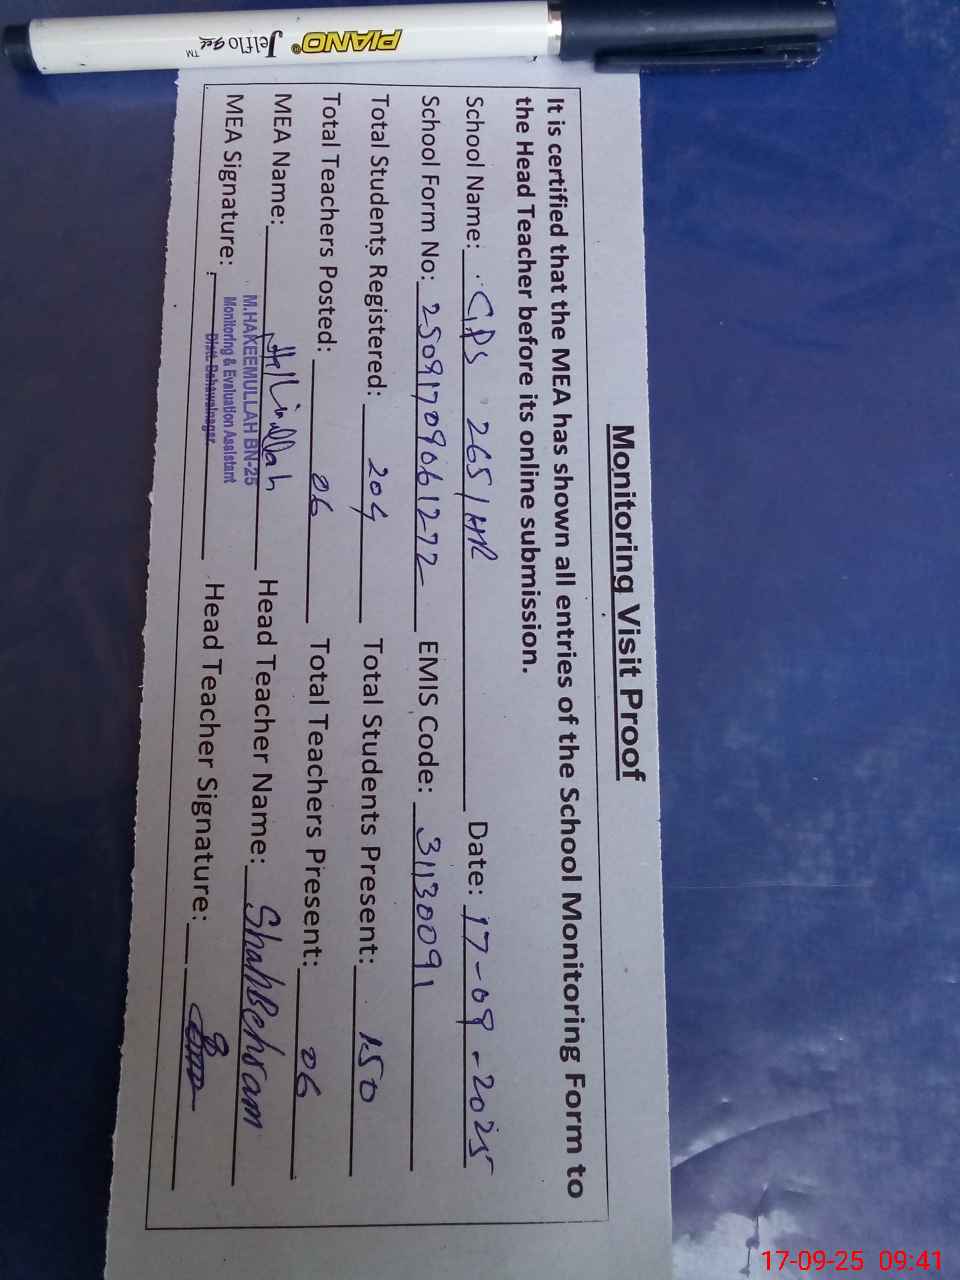 PIANO® Jelflo Gel ™
Monitoring Visit Proof
It is certified that the MEA has shown all entries of the School Monitoring Form to
the Head Teacher before its online submission.
School Name: GPS 265/HR Date: 17-09-2025
School Form No: 25091709061272 EMIS Code: 31130091
Total Students Registered: 204 Total Students Present: 150
Total Teachers Posted: 06 Total Teachers Present: 06
MEA Name: Head Teacher Name: ShahBehram
M.HAKEEMULLAH BN-25
MEA Signature: Head Teacher Signature:
Monitoring & Evaluation Assistant
Distt. Bahawalnagar
17-09-25 09:41